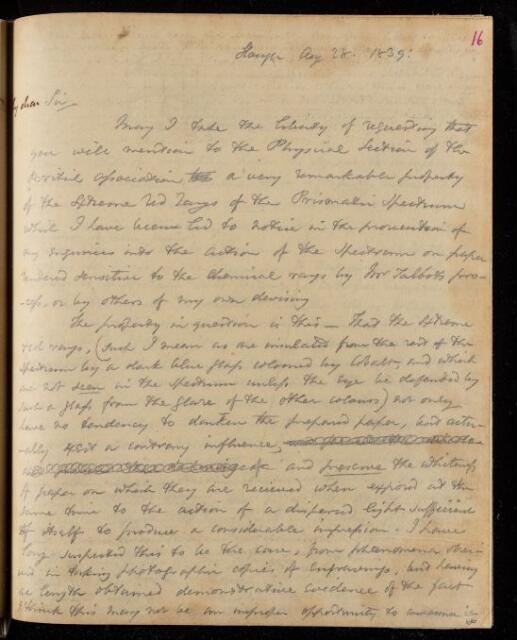 16
Slough Aug 28. 1839.
My dear Sir
May I take the liberty of requesting that
you will mention to the Physical Section of the
British Association a very remarkable property
of the extreme red rays of the Prismatic Spectrum
which I have been led to notice in the prosecution of
my inquiries into the action of the Spectrum on paper
rendered sensitive to the Chemical rays by Mr Talbots pro-
-cess, or by others of my own devising
The property in question is this — That the extreme
red rays, (such I mean as are insulated from the rest of the
spectrum by a dark blue glass coloured by Cobalt, and which
are not seen in the spectrum unless the eye be defended by
such a glass from the glare of the other colours) not only
have no tendency to darken the prepared paper, but actu-
ally exert a contrary influence,
and preserve the whiteness
of paper on which they are received when exposed at the
same time to the action of a dispersed light sufficient
of itself to produce a considerable impression. I have
long suspected this to be the case, from phenomena obser-
-ved in taking photographic copies of Engravings, and having
at length obtained demonstrative evidence of the fact
I think this may not be an improper opportunity to announce it